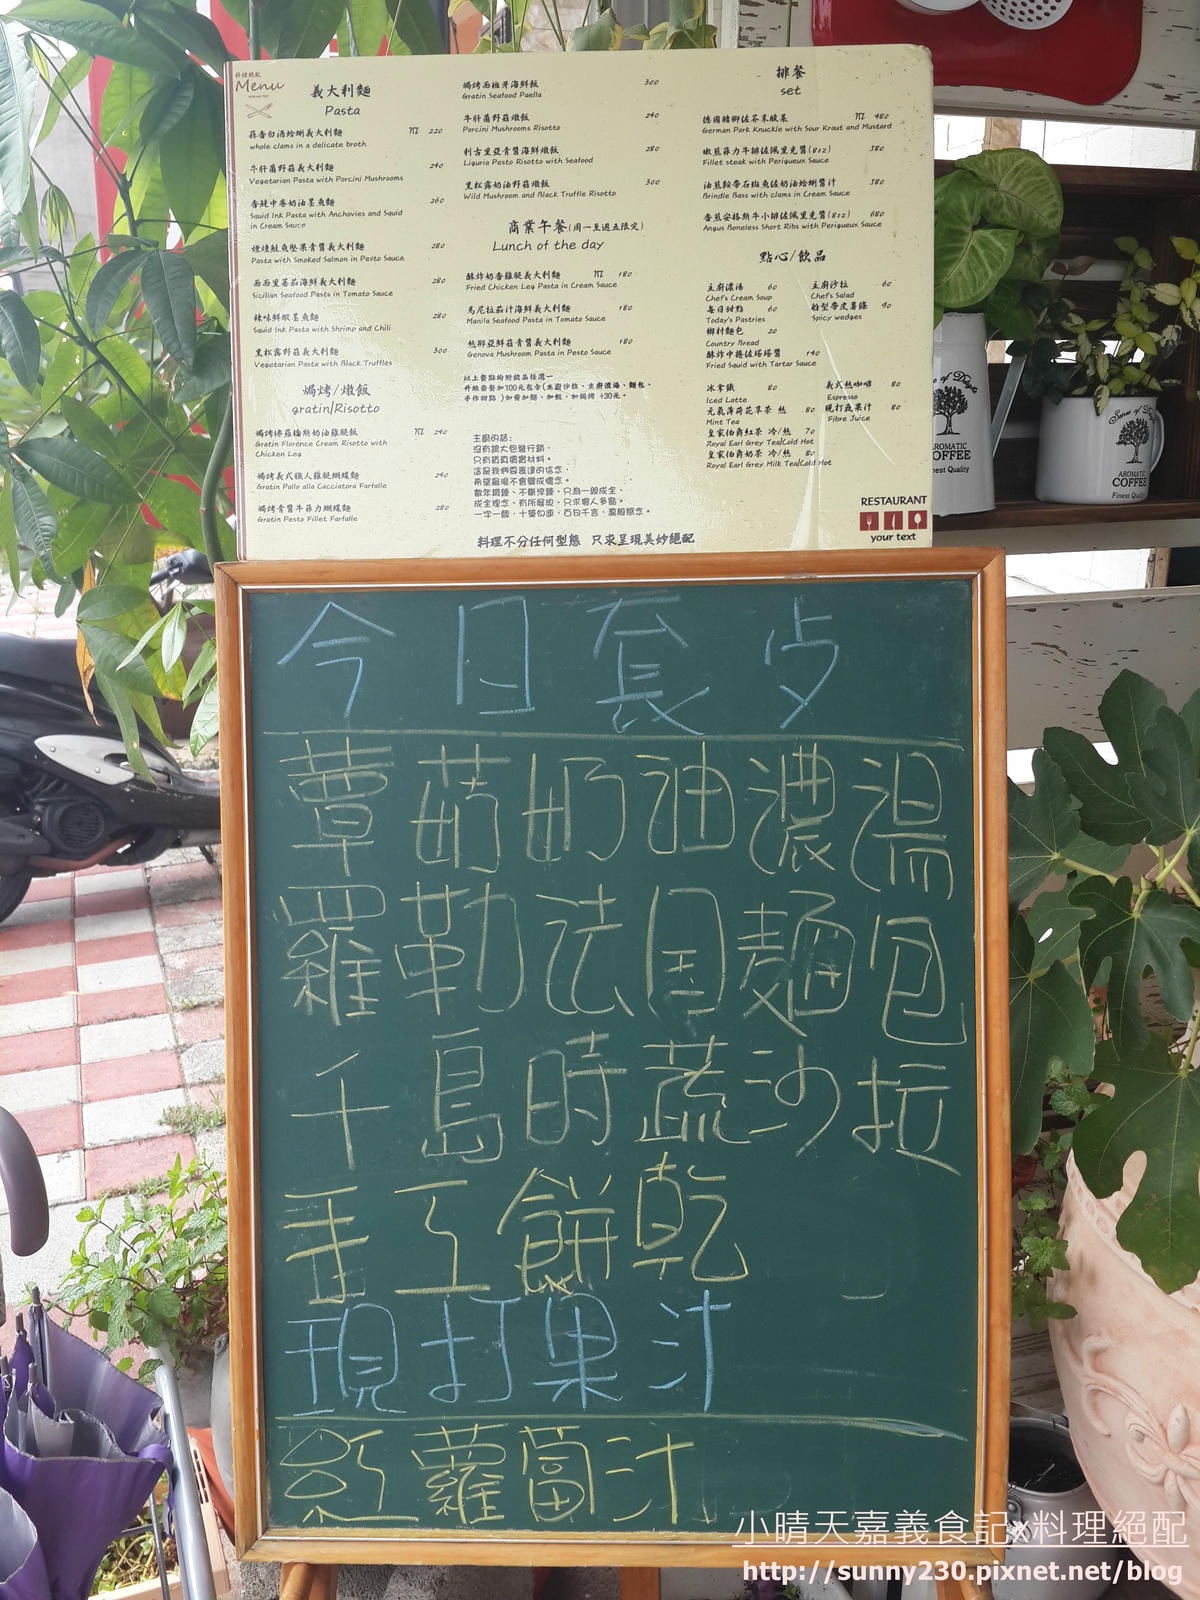 料理絕配
Menu
義大利麵
Pasta
蒜香白酒蛤蜊義大利麵 NT. 220
whole clams in a delicate broth
牛肝菌野菇義大利麵 240
Vegetarian Pasta with Porcini Mushrooms
香緹中卷奶油墨魚麵 260
Squid Ink Pasta with Anchovies and Squid
in Cream Sauce
煙燻鮭魚堅果青醬義大利麵 280
Pasta with Smoked Salmon in Pesto Sauce
西西里蕃茄海鮮義大利麵 280
Sicilian Seafood Pasta in Tomato Sauce
辣味鮮蝦墨魚麵 280
Squid Ink Pasta with Shrimp and Chili
黑松露野菇義大利麵 300
Vegetarian Pasta with Black Truffles
焗烤/燉飯
gratin/Risotto
焗烤佛羅倫斯奶油雞腿飯 NT. 240
Gratin Florence Cream Risotto with
Chicken Leg
焗烤義式職人雞腿蝴蝶麵 240
Gratin Pollo alla Cacciatora Farfalle
焗烤青醬牛菲力蝴蝶麵 280
Gratin Pesto Fillet Farfalle
焗烤西班牙海鮮飯 300
Gratin Seafood Paella
牛肝菌野菇燉飯 240
Porcini Mushrooms Risotto
利古里亞青醬海鮮燉飯 280
Liguria Pesto Risotto with Seafood
黑松露奶油野菇燉飯 300
Wild Mushroom and Black Truffle Risotto
商業午餐(周一至週五限定)
Lunch of the day
酥炸奶香雞腿義大利麵 NT. 180
Fried Chicken Leg Pasta in Cream Sauce
馬尼拉茄汁海鮮義大利麵 180
Manila Seafood Pasta in Tomato Sauce
熱那亞鮮菇青醬義大利麵 180
Genova Mushroom Pasta in Pesto Sauce
以上餐點均附飲品任選一
升級套餐加100元包含(主廚沙拉、主廚濃湯、麵包、
手作甜點)如需加麵、加飯、加焗烤 +30元。
主廚的話:
料理不分任何型態 只求呈現美妙絕配
排餐
set
德國豬腳佐芥末酸菜 NT. 480
German Pork Knuckle with Sour Kraut and Mustard
嫩煎菲力牛排佐佩里克醬(8oz) 380
Fillet steak with Perigueux Sauce
油煎鞍帶石斑魚佐奶油蛤蜊醬汁 380
Brindle Bass with clams in Cream Sauce
香煎安格斯牛小排佐佩里克醬(8oz) 680
Angus Boneless Short Ribs with Perigueux Sauce
點心/飲品
主廚濃湯 60
Chef's Cream Soup
每日甜點 60
Today's Pastries
鄉村麵包 20
Country Bread
酥炸中捲佐塔塔醬 140
Fried Squid with Tartar Sauce
主廚沙拉 60
Chef's Salad
船型帶皮薯條 90
Spicy wedges
冰拿鐵 80
Iced Latte
元氣薄荷花草茶 熱 80
Mint Tea
皇家伯爵紅茶 冷/熱 70
Royal Earl Grey Tea/Cold Hot
皇家伯爵奶茶 冷/熱 80
Royal Earl Grey Milk Tea/Cold Hot
義式熱咖啡 80
Espresso
現打蔬果汁 80
Fibre Juice
RESTAURANT
your text
AROMATIC
COFFEE
Finest Quality
AROMATIC
COFFEE
Finest Quality
今日套歺
蕈菇奶油濃湯
羅勒法国麵包
千島時蔬沙拉
手工餅乾
現打果汁
紅蘿蔔汁
小晴天嘉義食記x料理絕配
http://sunny230.pixnet.net/blog